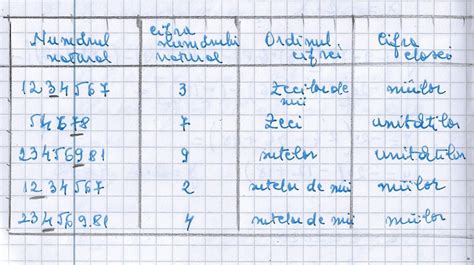 Numărul natural | cifra numărului natural | Ordinul cifrei | Cifra clasei
1234567 | 3 | Zecilor de mii | miilor
54678 | 7 | Zeci | unităților
23456981 | 9 | sutelor | unităților
1234567 | 2 | sutelor de mii | miilor
234569.81 | 4 | sutelor de mii | miilor